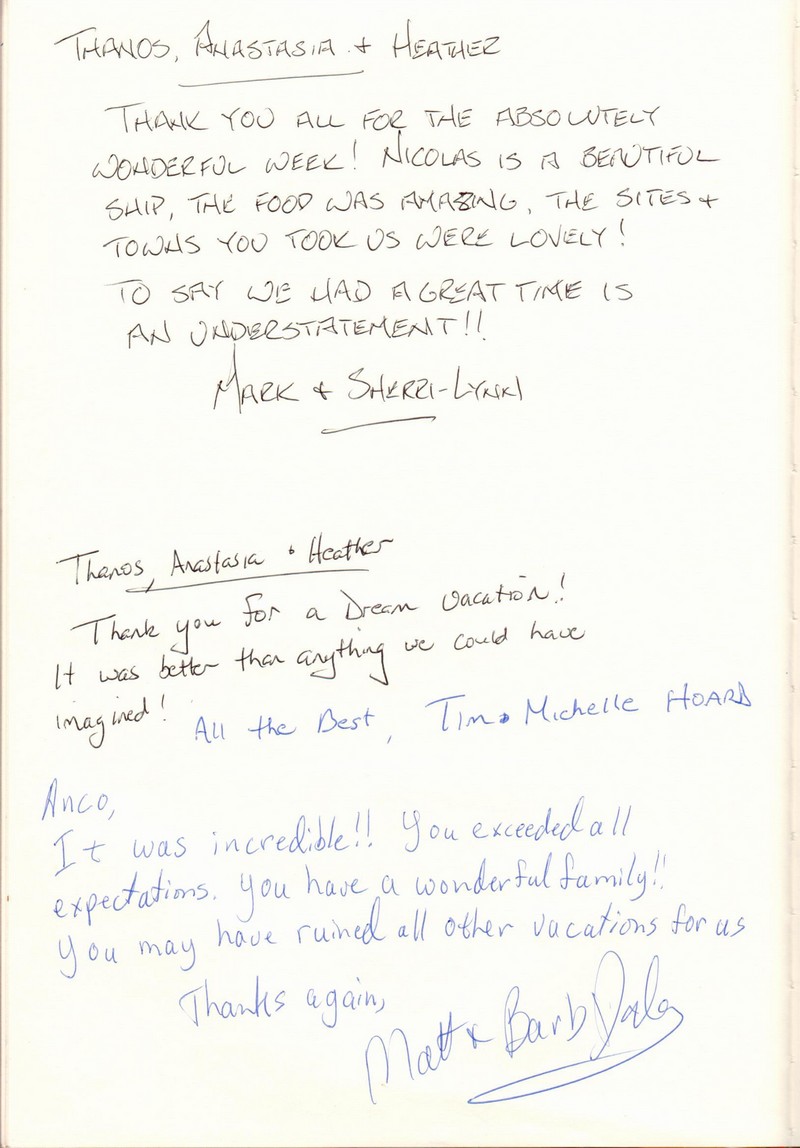 THANOS, ANASTASIA + HEATHER
THANK YOU ALL FOR THE ABSOLUTELY
WONDERFUL WEEK! NICOLAS IS A BEAUTIFUL
SHIP, THE FOOD WAS AMAZING, THE SITES +
TOWNS YOU TOOK US WERE LOVELY!
TO SAY WE HAD A GREAT TIME IS
AN UNDERSTATEMENT!!
MARK + SHERRI-LYNN
Thanos, Anastasia + Heather
Thank you for a Dream vacation!
It was better than anything we could have
imagined!
All the Best, Tim + Michelle HOARD
Anco,
It was incredible!! You exceeded all
expectations. You have a wonderful family!!
You may have ruined all other vacations for us
Thanks again,
Matt & Barb